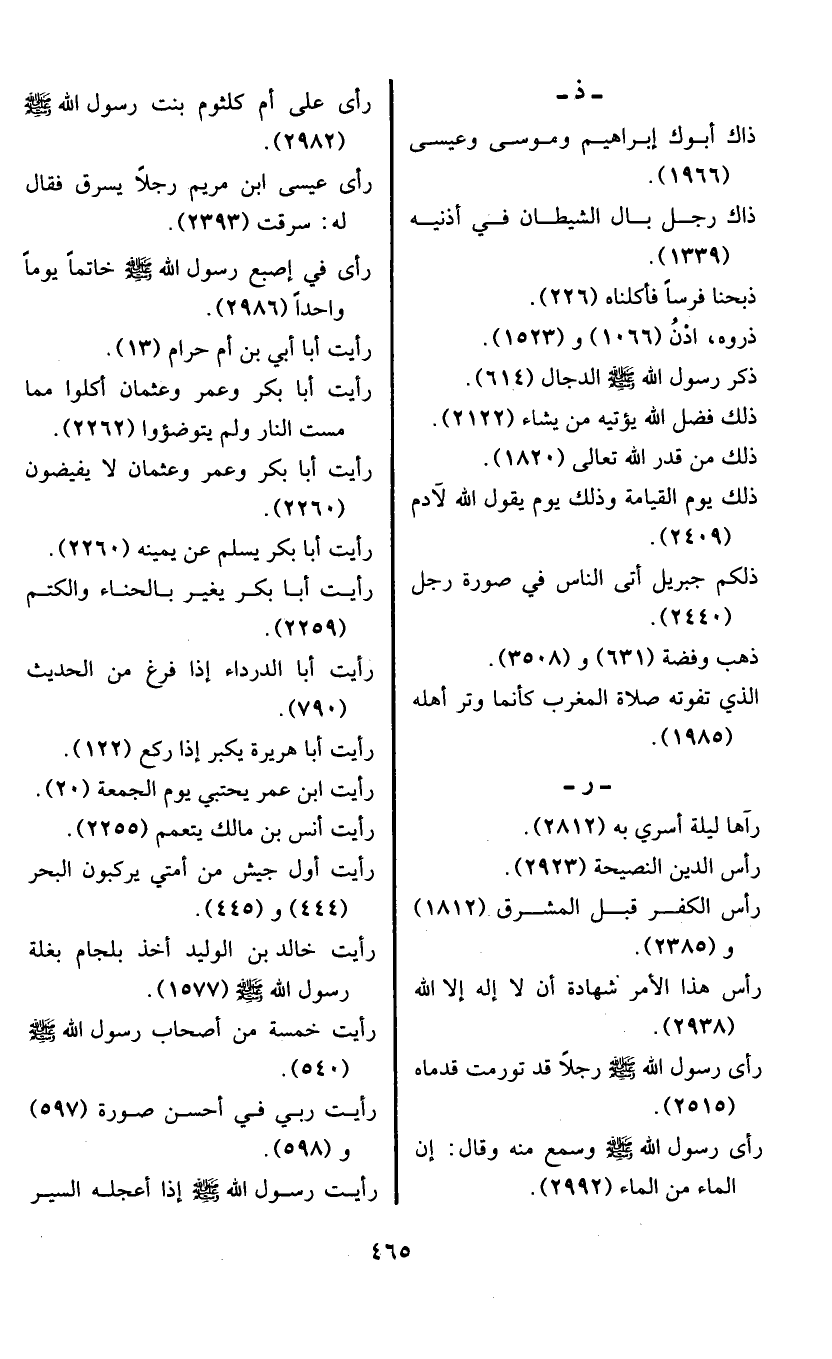 - ذ -
ذاك أبوك إبراهيم وموسى وعيسى
(١٩٦٦).
ذاك رجل بال الشيطان في أذنيه
(١٣٣٩).
ذبحنا فرساً فأكلناه (٢٢٦).
ذروه، ادْنُ (١٠٦٦) و (١٥٢٣).
ذكر رسول الله ﷺ الدجال (٦١٤).
ذلك فضل الله يؤتيه من يشاء (٢١٢٢).
ذلك من قدر الله تعالى (١٨٢٠).
ذلك يوم القيامة وذلك يوم يقول الله لآدم
(٢٤٠٩).
ذلكم جبريل أتى الناس في صورة رجل
(٢٤٤٠).
ذهب وفضة (٦٣١) و (٣٥٠٨).
الذي تفوته صلاة المغرب كأنما وتر أهله
(١٩٨٥).
- ر -
رآها ليلة أسري به (٢٨١٢).
رأس الدين النصيحة (٢٩٢٣).
رأس الكفر قبل المشرق (١٨١٢)
و (٢٣٨٥).
رأس هذا الأمر شهادة أن لا إله إلا الله
(٢٩٣٨).
رأى رسول الله ﷺ رجلاً قد تورمت قدماه
(٢٥١٥).
رأى رسول الله ﷺ وسمع منه وقال: إن
الماء من الماء (٢٩٩٢).
رأى على أم كلثوم بنت رسول الله ﷺ
(٢٩٨٢).
رأى عيسى ابن مريم رجلاً يسرق فقال
له: سرقت (٢٣٩٣).
رأى في إصبع رسول الله ﷺ خاتماً يوماً
واحداً (٢٩٨٦).
رأيت أبا أبي بن أم حرام (١٣).
رأيت أبا بكر وعمر وعثمان أكلوا مما
مست النار ولم يتوضؤوا (٢٢٦٢).
رأيت أبا بكر وعمر وعثمان لا يفيضون
(٢٢٦٠).
رأيت أبا بكر يسلم عن يمينه (٢٢٦٠).
رأيت أبا بكر يغير بالحناء والكتم
(٢٢٥٩).
رأيت أبا الدرداء إذا فرغ من الحديث
(٧٩٠).
رأيت أبا هريرة يكبر إذا ركع (١٢٢).
رأيت ابن عمر يحتبي يوم الجمعة (٢٠).
رأيت أنس بن مالك يتعمم (٢٢٥٥).
رأيت أول جيش من أمتي يركبون البحر
(٤٤٤) و (٤٤٥).
رأيت خالد بن الوليد أخذ بلجام بغلة
رسول الله ﷺ (١٥٧٧).
رأيت خمسة من أصحاب رسول الله ﷺ
(٥٤٠).
رأيت ربي في أحسن صورة (٥٩٧)
و (٥٩٨).
رأيت رسول الله ﷺ إذا أعجله السير
٤٦٥